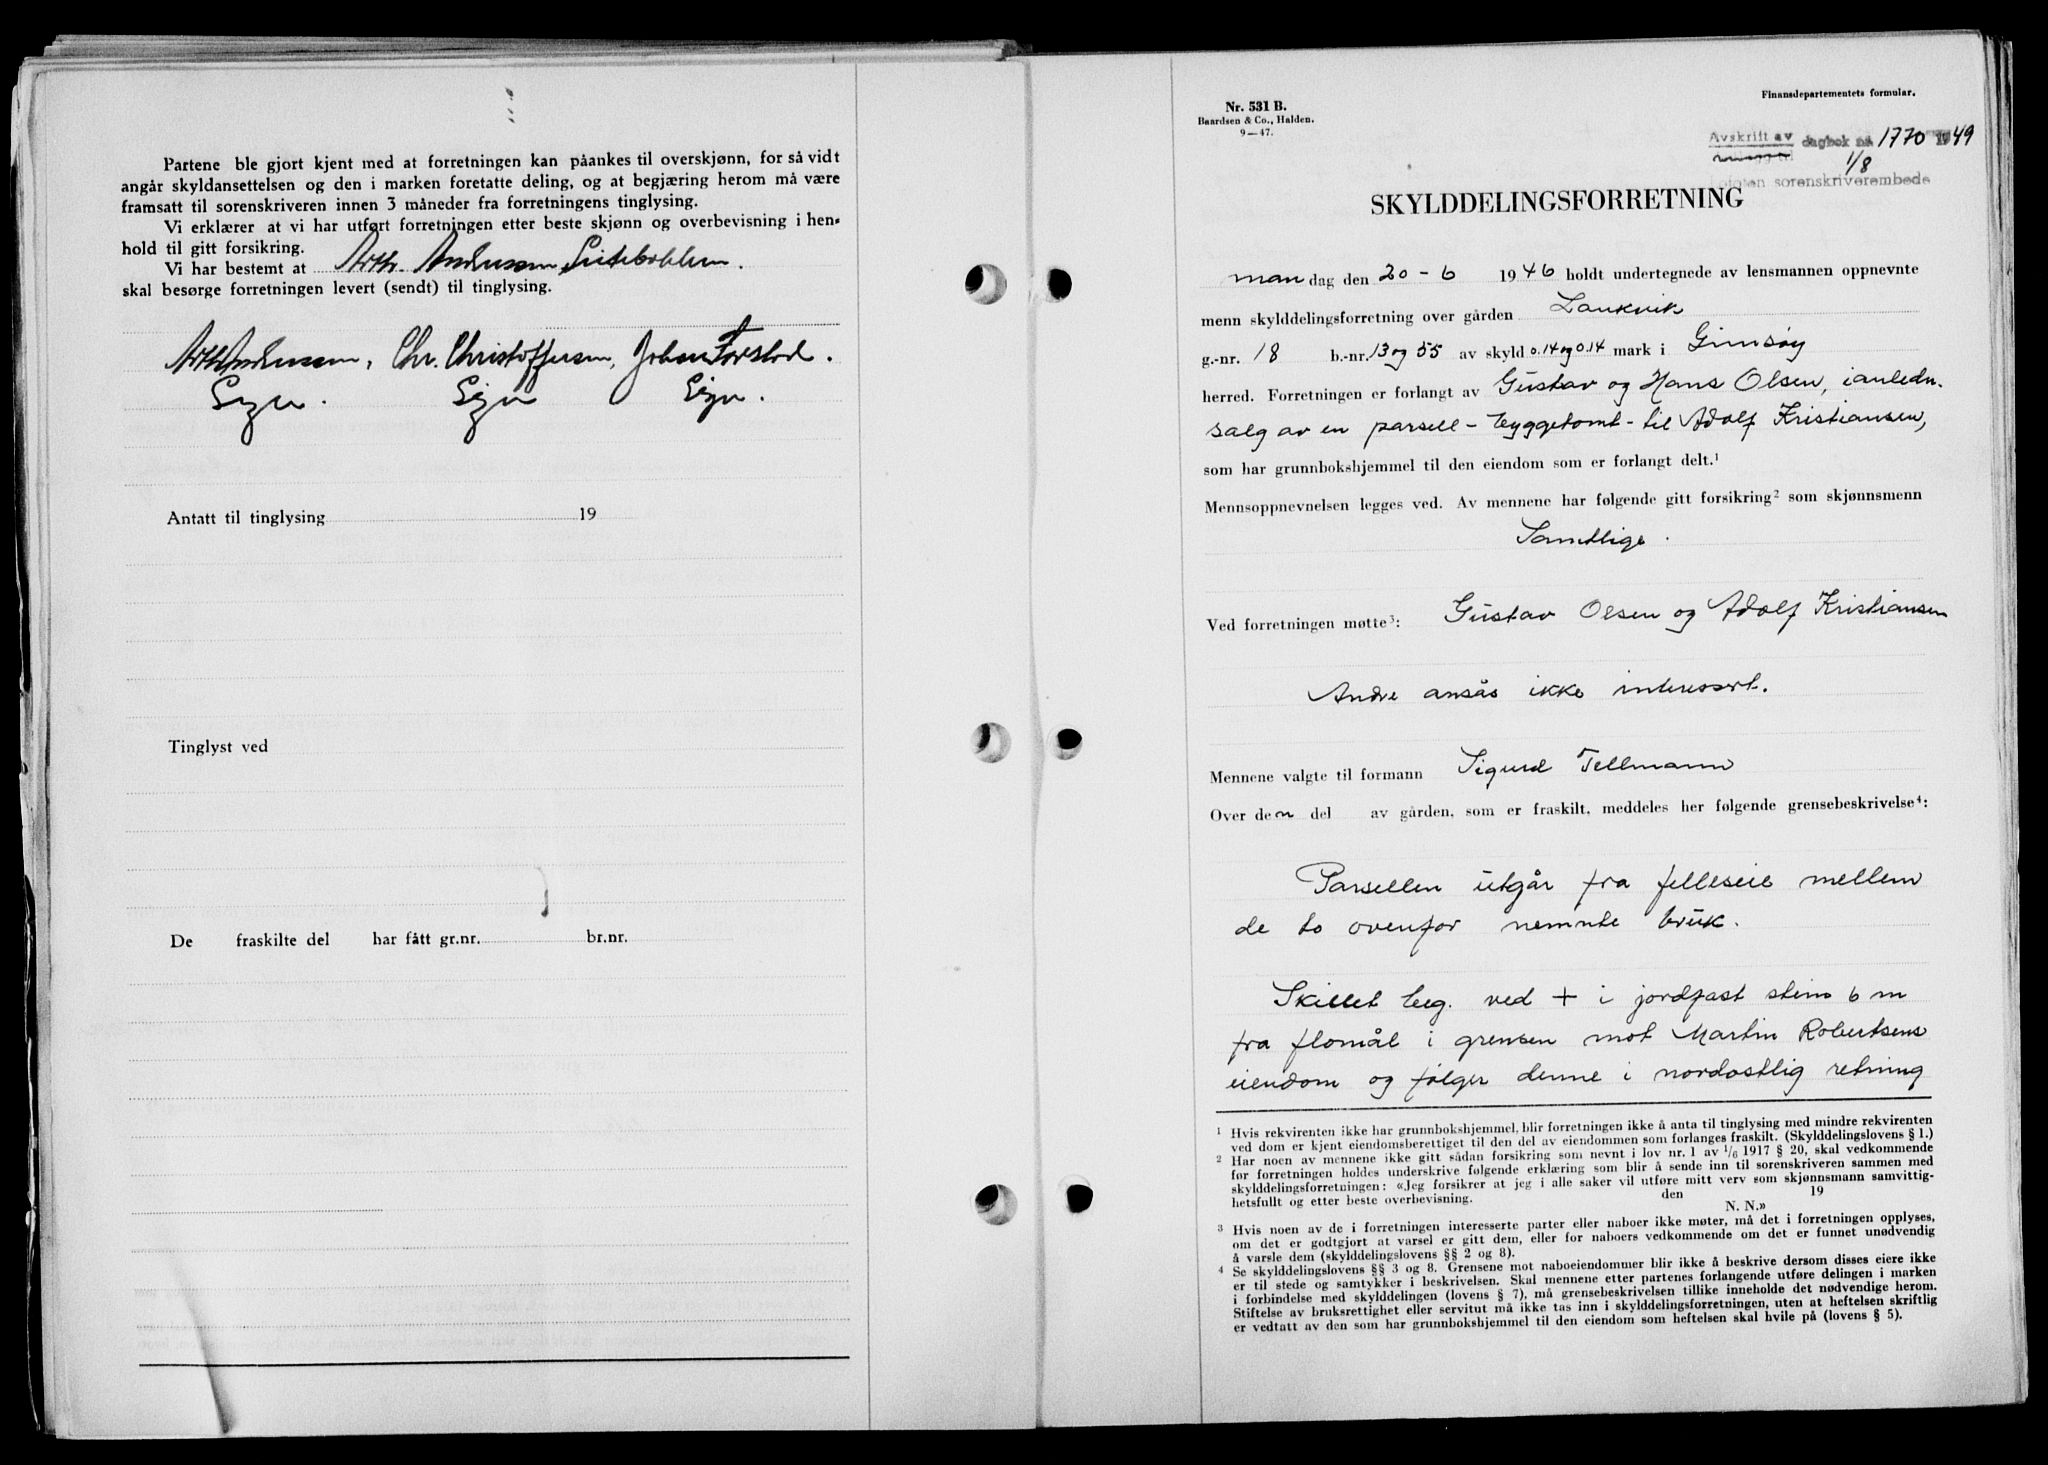 Partene ble gjort kjent med at forretningen kan påankes til overskjønn, for så vidt
angår skyldansettelsen og den i marken foretatte deling, og at begjæring herom må være
framsatt til sorenskriveren innen 3 måneder fra forretningens tinglysing.
Vi erklærer at vi har utført forretningen etter beste skjønn og overbevisning i hen-
hold til gitt forsikring.
Vi har bestemt at Arth. Andreassen
skal besørge forretningen levert (sendt) til tinglysing.
Arth Andreassen, Chr. Christoffersen, Johan Forstad.
Sign. Sign Sign.
Antatt til tinglysing 19
Tinglyst ved
De fraskilte del har fått gr.nr. br.nr.
Nr. 531 B.
Baardsen & Co., Halden.
9—47.
Finansdepartementets formular.
Avskrift av dagbok nr. 1770 1949
1/8
Lofoten sorenskriverembede
SKYLDDELINGSFORRETNING
man dag den 20-6 1946 holdt undertegnede av lensmannen oppnevnte
menn skylddelingsforretning over gården Laukvik
g.-nr. 18 b.-nr. 13 og 55 av skyld 0.14 og 0.14 mark i Gimsøy
herred. Forretningen er forlangt av Gustav og Hans Olsen, i anledn.
salg av en parsell - byggetomt - til Adolf Kristiansen,
som har grunnbokshjemmel til den eiendom som er forlangt delt.¹
Mennsoppnevnelsen legges ved. Av mennene har følgende gitt forsikring² som skjønnsmenn
Samtlige.
Ved forretningen møtte³: Gustav Olsen og Adolf Kristiansen
Andre ansås ikke interessert.
Mennene valgte til formann Sigurd Tellmann
Over den del av gården, som er fraskilt, meddeles her følgende grensebeskrivelse⁴:
Parsellen utgår fra felleseie mellem
de to ovenfor nemnte bruk.
Skillet beg. ved + i jordfast stein 6 m
fra flomål i grensen mot Martin Robertsens
eiendom og følger denne i nordøstlig retning
¹ Hvis rekvirenten ikke har grunnbokshjemmel, blir forretningen ikke å anta til tinglysing med mindre rekvirenten
ved dom er kjent eiendomsberettiget til den del av eiendommen som forlanges fraskilt. (Skylddelingslovens § 1.)
² Har noen av mennene ikke gitt sådan forsikring som nevnt i lov nr. 1 av 1/6 1917 § 20, skal vedkommende
før forretningen holdes underskrive følgende erklæring som blir å sende inn til sorenskriveren sammen med
skylddelingsforretningen: «Jeg forsikrer at jeg i alle saker vil utføre mitt verv som skjønnsmann samvittig-
hetsfullt og etter beste overbevisning. den 19
N. N.»
³ Hvis noen av de i forretningen interesserte parter eller naboer ikke møter, må det i forretningen opplyses,
om det er godtgjort at varsel er gitt dem, eller for naboers vedkommende om det er funnet unødvendig
å varsle dem (skylddelingslovens §§ 2 og 8).
⁴ Se skylddelingslovens §§ 3 og 8. Grensene mot naboeiendommer blir ikke å beskrive dersom disses eiere ikke
er til stede og samtykker i beskrivelsen. Skal mennene etter partenes forlangende utføre delingen i marken
i forbindelse med skylddelingen (lovens § 7), må grensebeskrivelsen tillike inneholde det nødvendige herom.
Stiftelse av bruksrettighet eller servitut må ikke tas inn i skylddelingsforretningen, uten at heftelsen skriftlig
er vedtatt av den som har grunnbokshjemmel til den eiendom som heftelsen skal hvile på (lovens § 5).